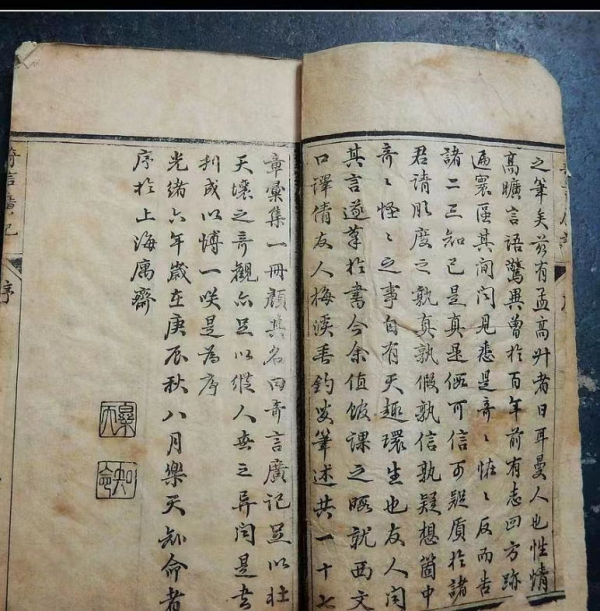 之筆矣茲有孟高升者日耳曼人也性情
高曠言語驚異曾於百年前有志四方跡
遍寰區其間聞見悉是奇〻怪〻反而告
諸二三知已是真是假可信可疑質於諸
君請臆度之孰真孰假孰信孰疑想箇中
奇〻怪〻之事自有天趣環生也友人聞
其言遂草於書今余值館課之暇就西文
口譯倩友人梅溪垂釣叟筆述共一十七
章彙集一冊顏其名曰奇言廣記足以壯
天壤之奇觀亦足以縱人世之異聞是書
刊成以博一咲是為序
光緒六年歲在庚辰秋八月樂天知命者
序於上海寓齋
樂天
知命
奇言廣記
序